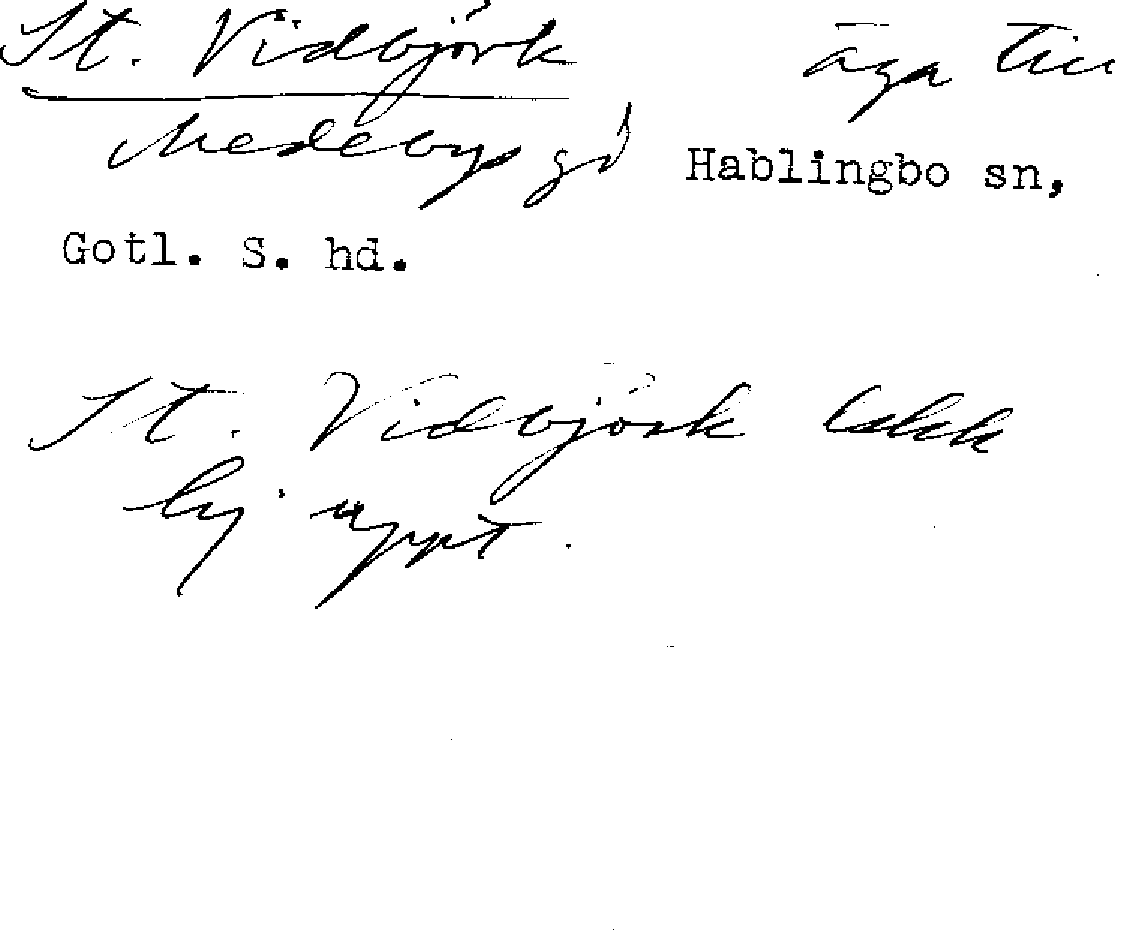 St. Vidbjörk äga till
Medebys gd Hablingbo sn,
Gotl. S. hd.
St. Vidbjörk
Ej uppt.